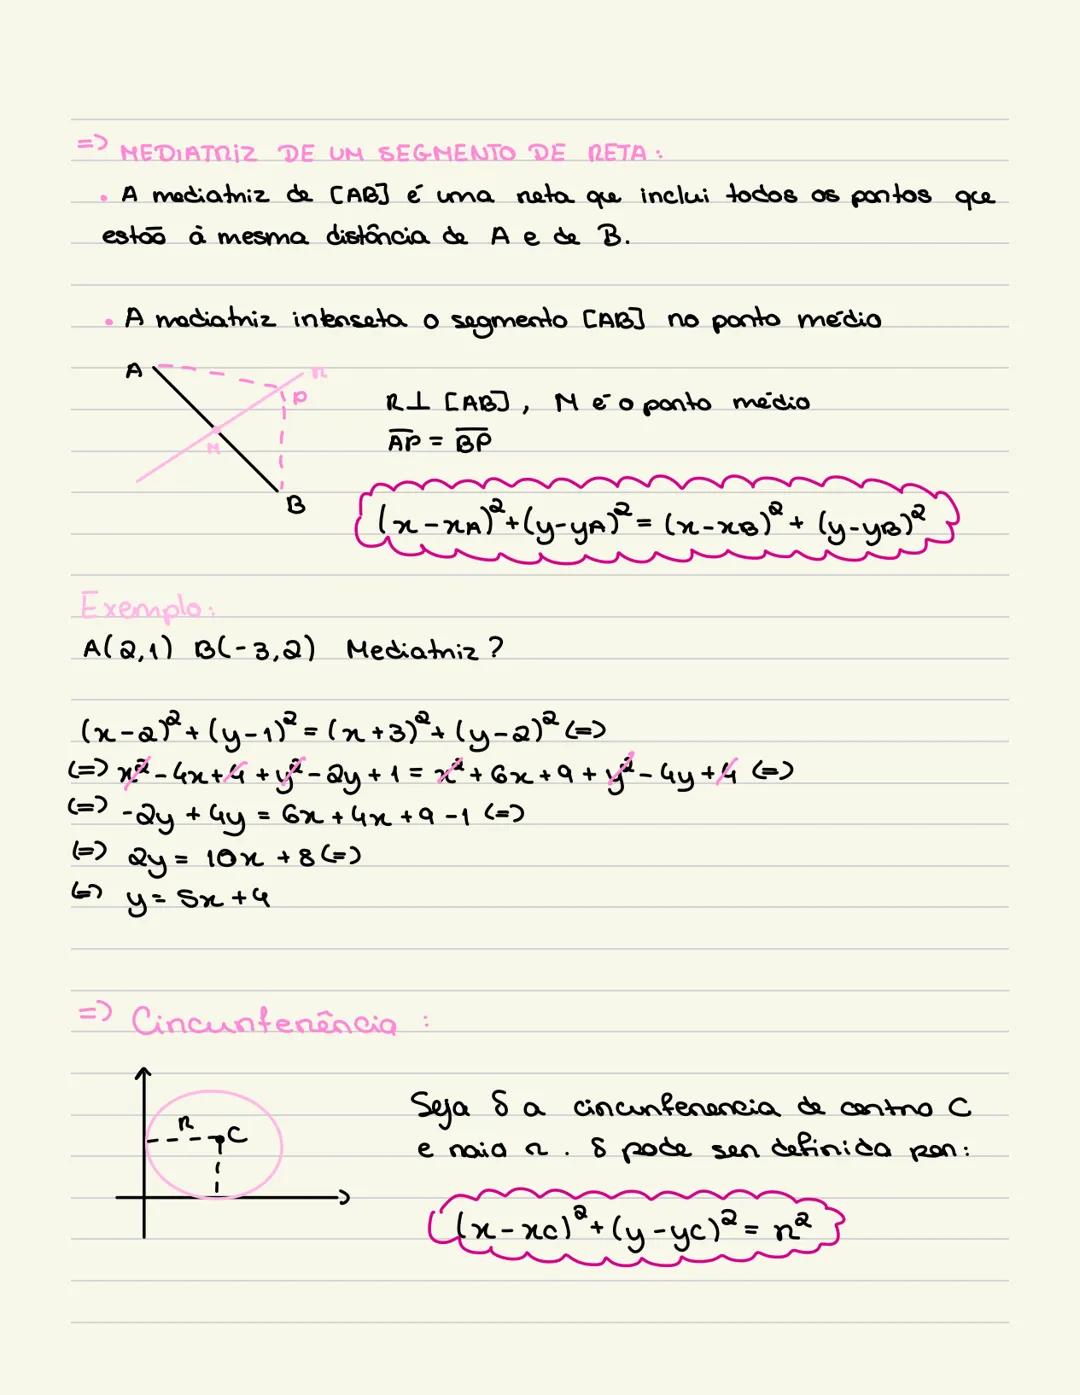 => MEDIATRIZ DE UM SEGMENTO DE RETA:
• A mediatriz de [AB] é uma reta que inclui todos os pontos que
estão à mesma distância de A e de B.
• A mediatriz interseta o segmento [AB] no ponto médio
A
r
P
M
B
R⊥ [AB], M é o ponto médio
A̅P̅ = B̅P̅
(x-xA)²+(y-yA)² = (x-xB)² + (y-yB)²
Exemplo:
A(2,1) B(-3,2) Mediatriz?
(x-2)²+(y-1)² = (x+3)²+(y-2)² (=)
(=) x²-4x+4+y²-2y+1 = x²+6x+9+y²-4y+4 (=)
(=) -2y+4y = 6x+4x+9-1 (=)
(=) 2y = 10x +8 (=)
(=) y = 5x +4
=> Circunferência :
R
C
Seja δ a circunferencia de centro C
e raio r. δ pode ser definida por:
(x-xc)²+(y-yc)² = r²